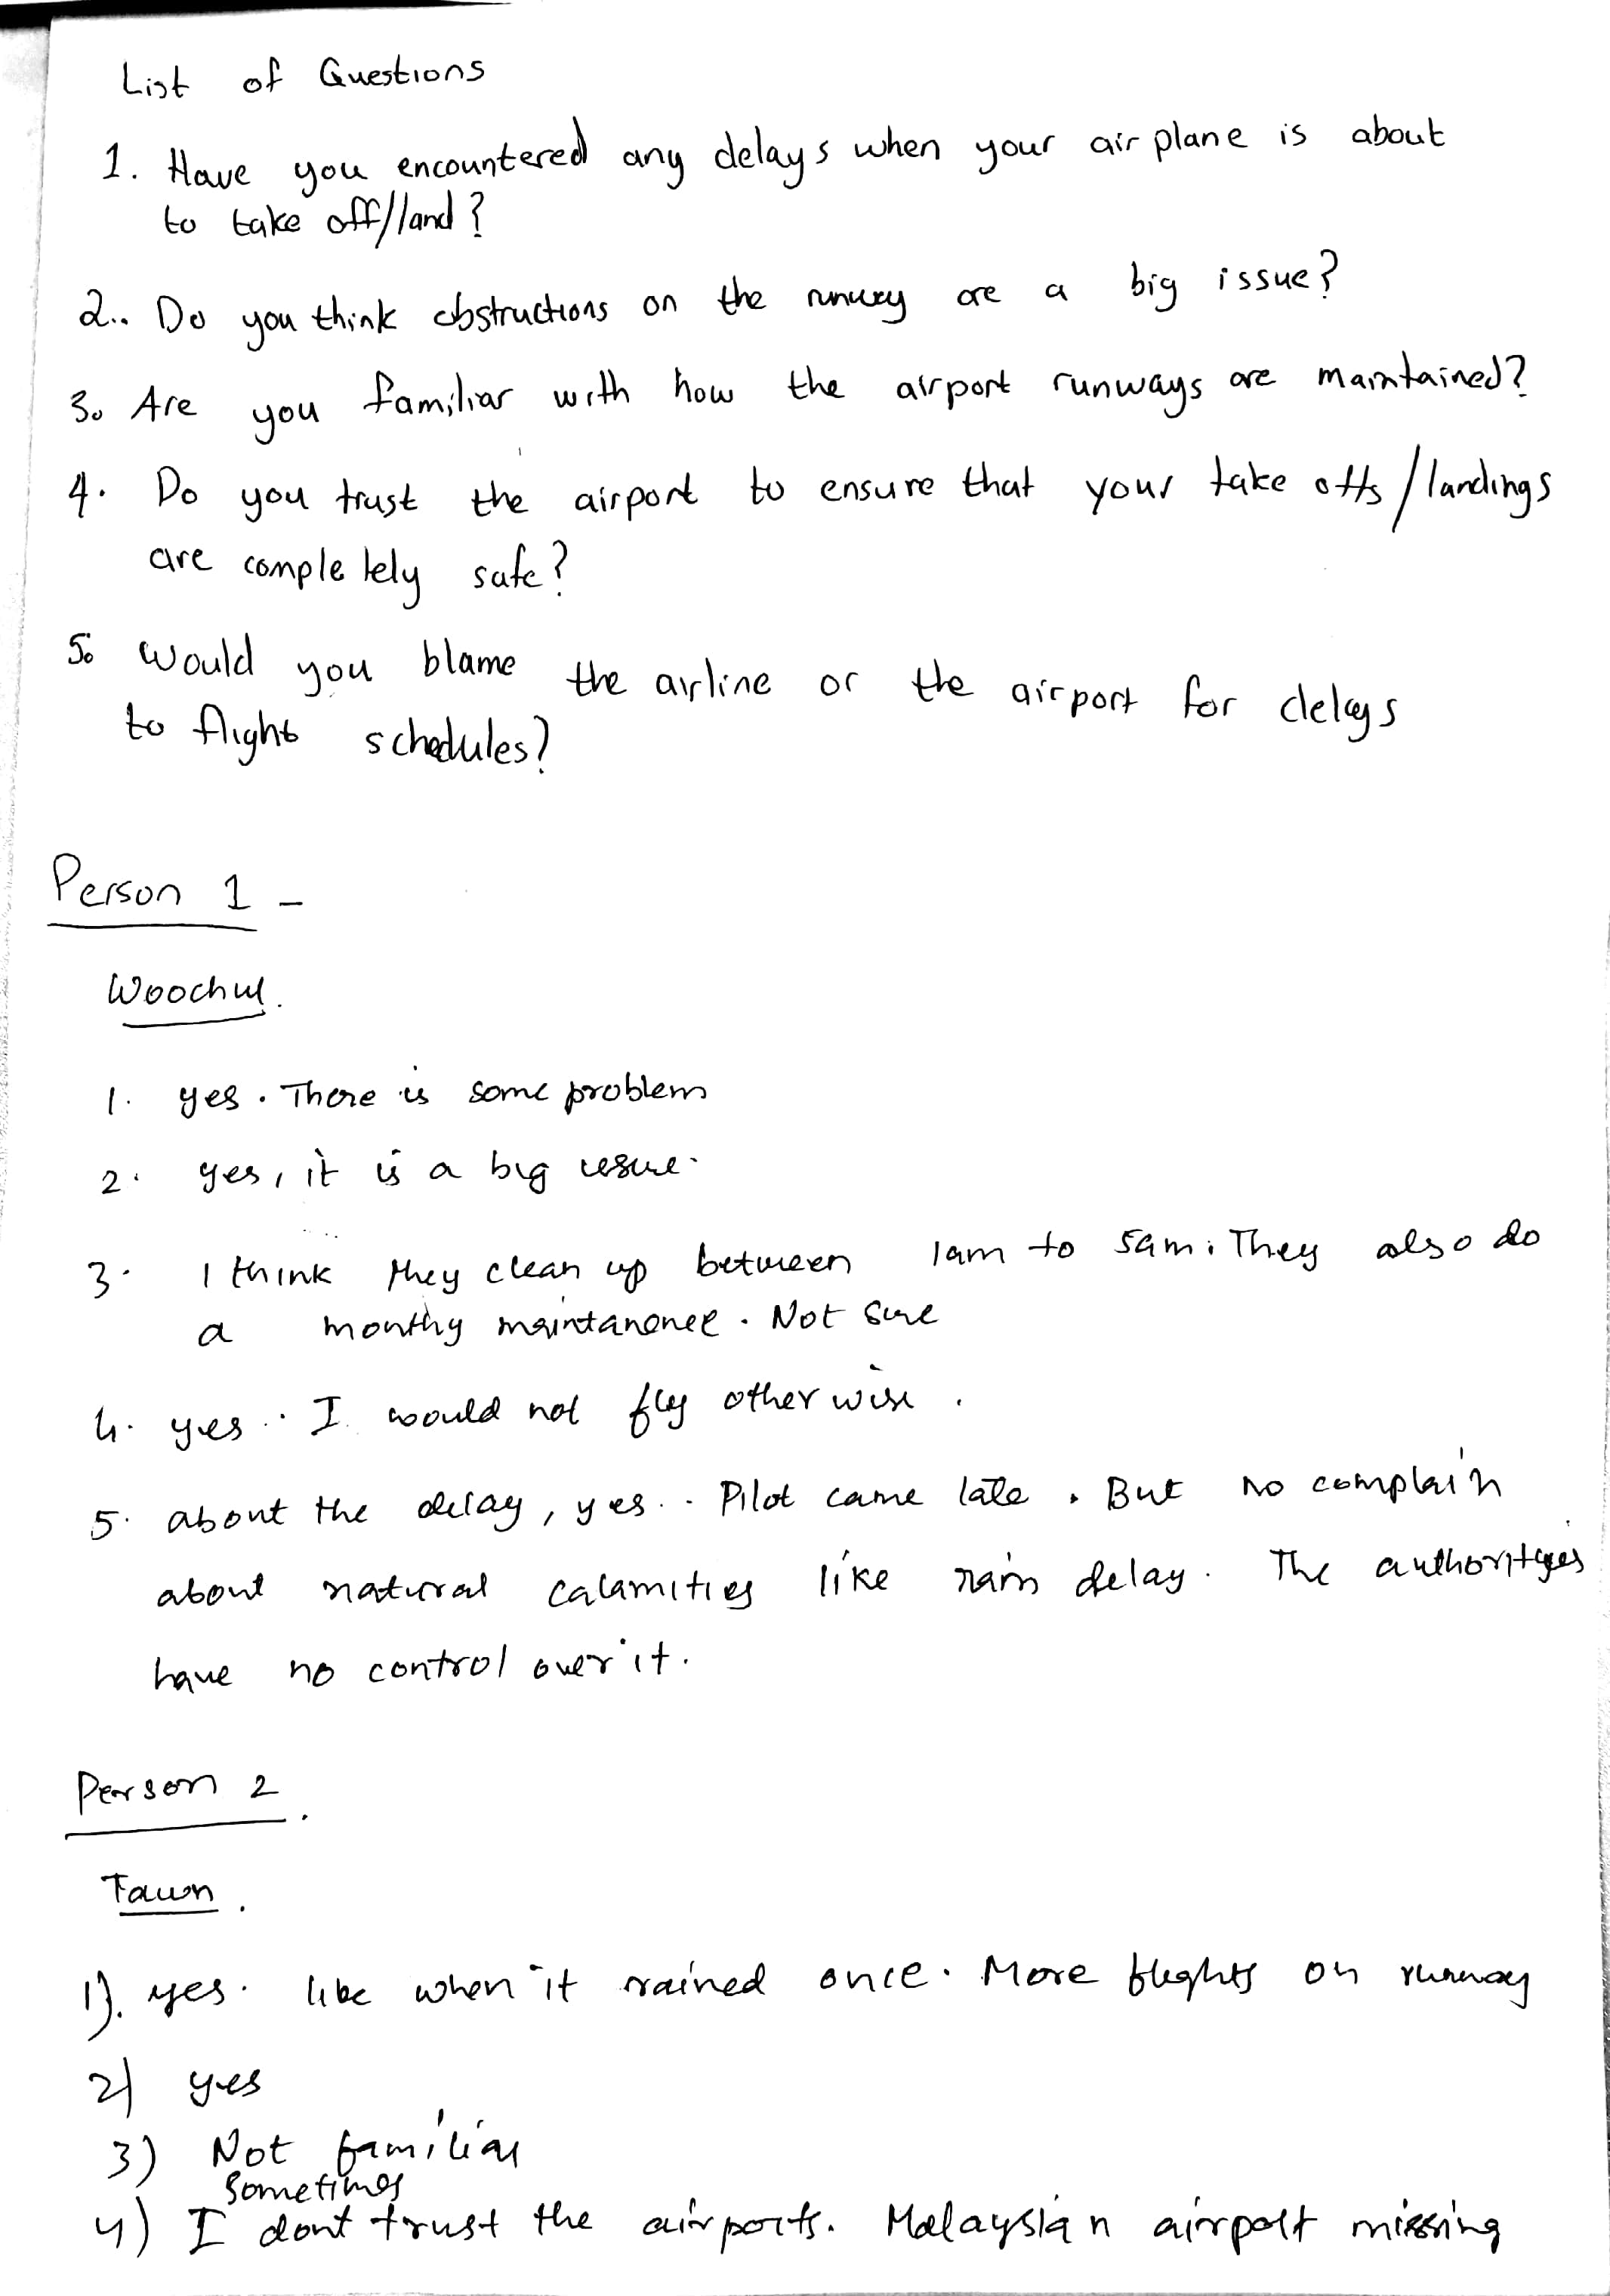 List of Questions
1. Have you encountered any delays when your airplane is about
to take off/land?
2. Do you think obstructions on the runway are a big issue?
3. Are you familiar with how the airport runways are maintained?
4. Do you trust the airport to ensure that your take offs/landings
are completely safe?
5. Would you blame the airline or the airport for delays
to flight schedules?
Person 1 -
Woochul.
1. yes. There is some problem
2. yes, it is a big issue.
3. I think they clean up between 1am to 5am. They also do
a monthy maintanence. Not sure
4. yes. I would not fly otherwise.
5. about the delay, yes. Pilot came late. But no complain
about natural calamities like rain delay. The authorityes
have no control over it.
Person 2.
Fawn.
1). yes. like when it rained once. More flights on runway
2) yes
3) Not familiar
Sometimes
4) I dont trust the airports. Malaysian airport missing